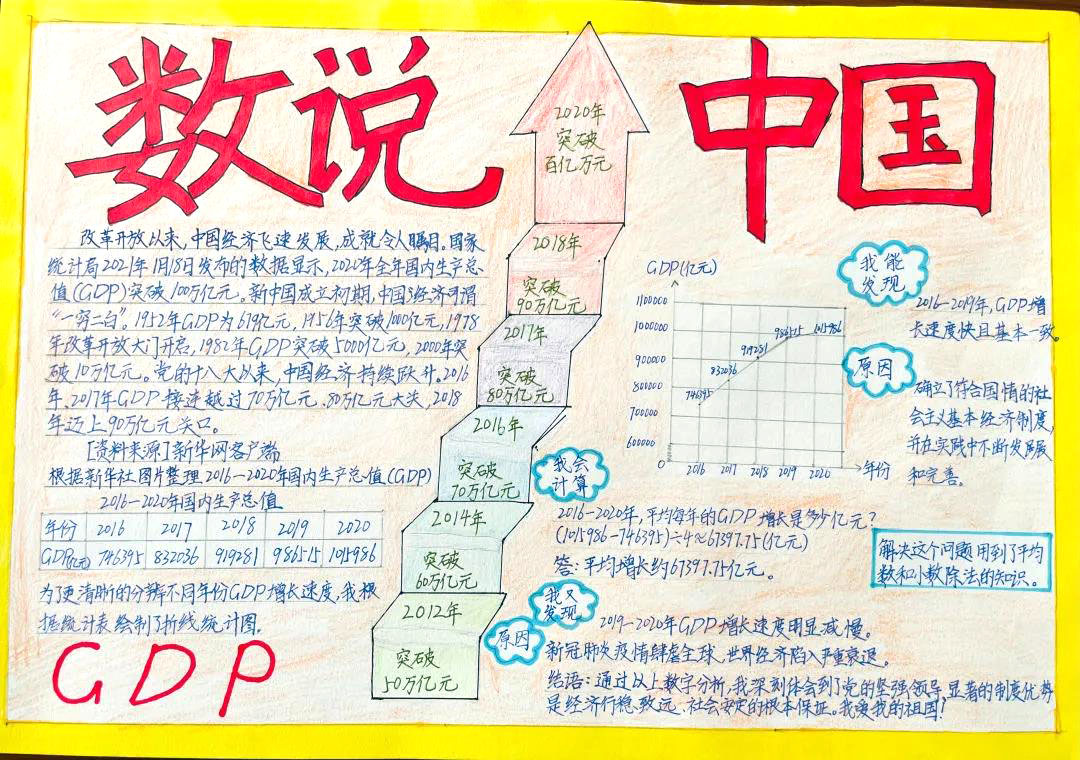 数说中国
改革开放以来,中国经济飞速发展,成就令人瞩目。国家
统计局2021年1月18日发布的数据显示,2020年全年国内生产总
值(GDP)突破100万亿元。新中国成立初期,中国经济可谓
“一穷二白”。1952年GDP为679亿元,1956年突破1000亿元,1978
年改革开放大门开启,1982年GDP突破5000亿元,2000年突
破10万亿元。党的十八大以来,中国经济持续跃升。2016
年、2017年GDP接连越过70万亿元、80万亿元大关,2018
年迈上90万亿元关口。
[资料来源]新华网客户端
根据新华社图片整理2016-2020年国内生产总值(GDP)
2016-2020年国内生产总值
年份 2016 2017 2018 2019 2020
GDP(亿元) 746395 832036 919281 986515 1015986
为了更清晰的分辨不同年份GDP增长速度,我根
据统计表绘制了折线统计图.
GDP
2020年
突破
百亿万元
2018年
突破
90万亿元
2017年
突破
80万亿元
2016年
突破
70万亿元
2014年
突破
60万亿元
2012年
突破
50万亿元
GDP(亿元)
1100000
1000000
900000
800000
700000
600000
0
746395
832036
919281
986515
1015986
2016 2017 2018 2019 2020
年份
我能
发现
2016-2019年,GDP增
长速度快且基本一致。
原因
确立了符合国情的社
会主义基本经济制度,
并在实践中不断发展
和完善。
我会
计算
2016-2020年,平均每年的GDP增长是多少亿元?
(1015986-746395)÷4≈67397.75(亿元)
答:平均增长约67397.75亿元。
解决这个问题用到了平均
数和小数除法的知识。
我又
发现
2019-2020年GDP增长速度明显减慢。
原因
新冠肺炎疫情肆虐全球,世界经济陷入严重衰退。
结语:通过以上数字分析,我深刻体会到了党的坚强领导,显著的制度优势
是经济行稳致远、社会安定的根本保证。我爱我的祖国!